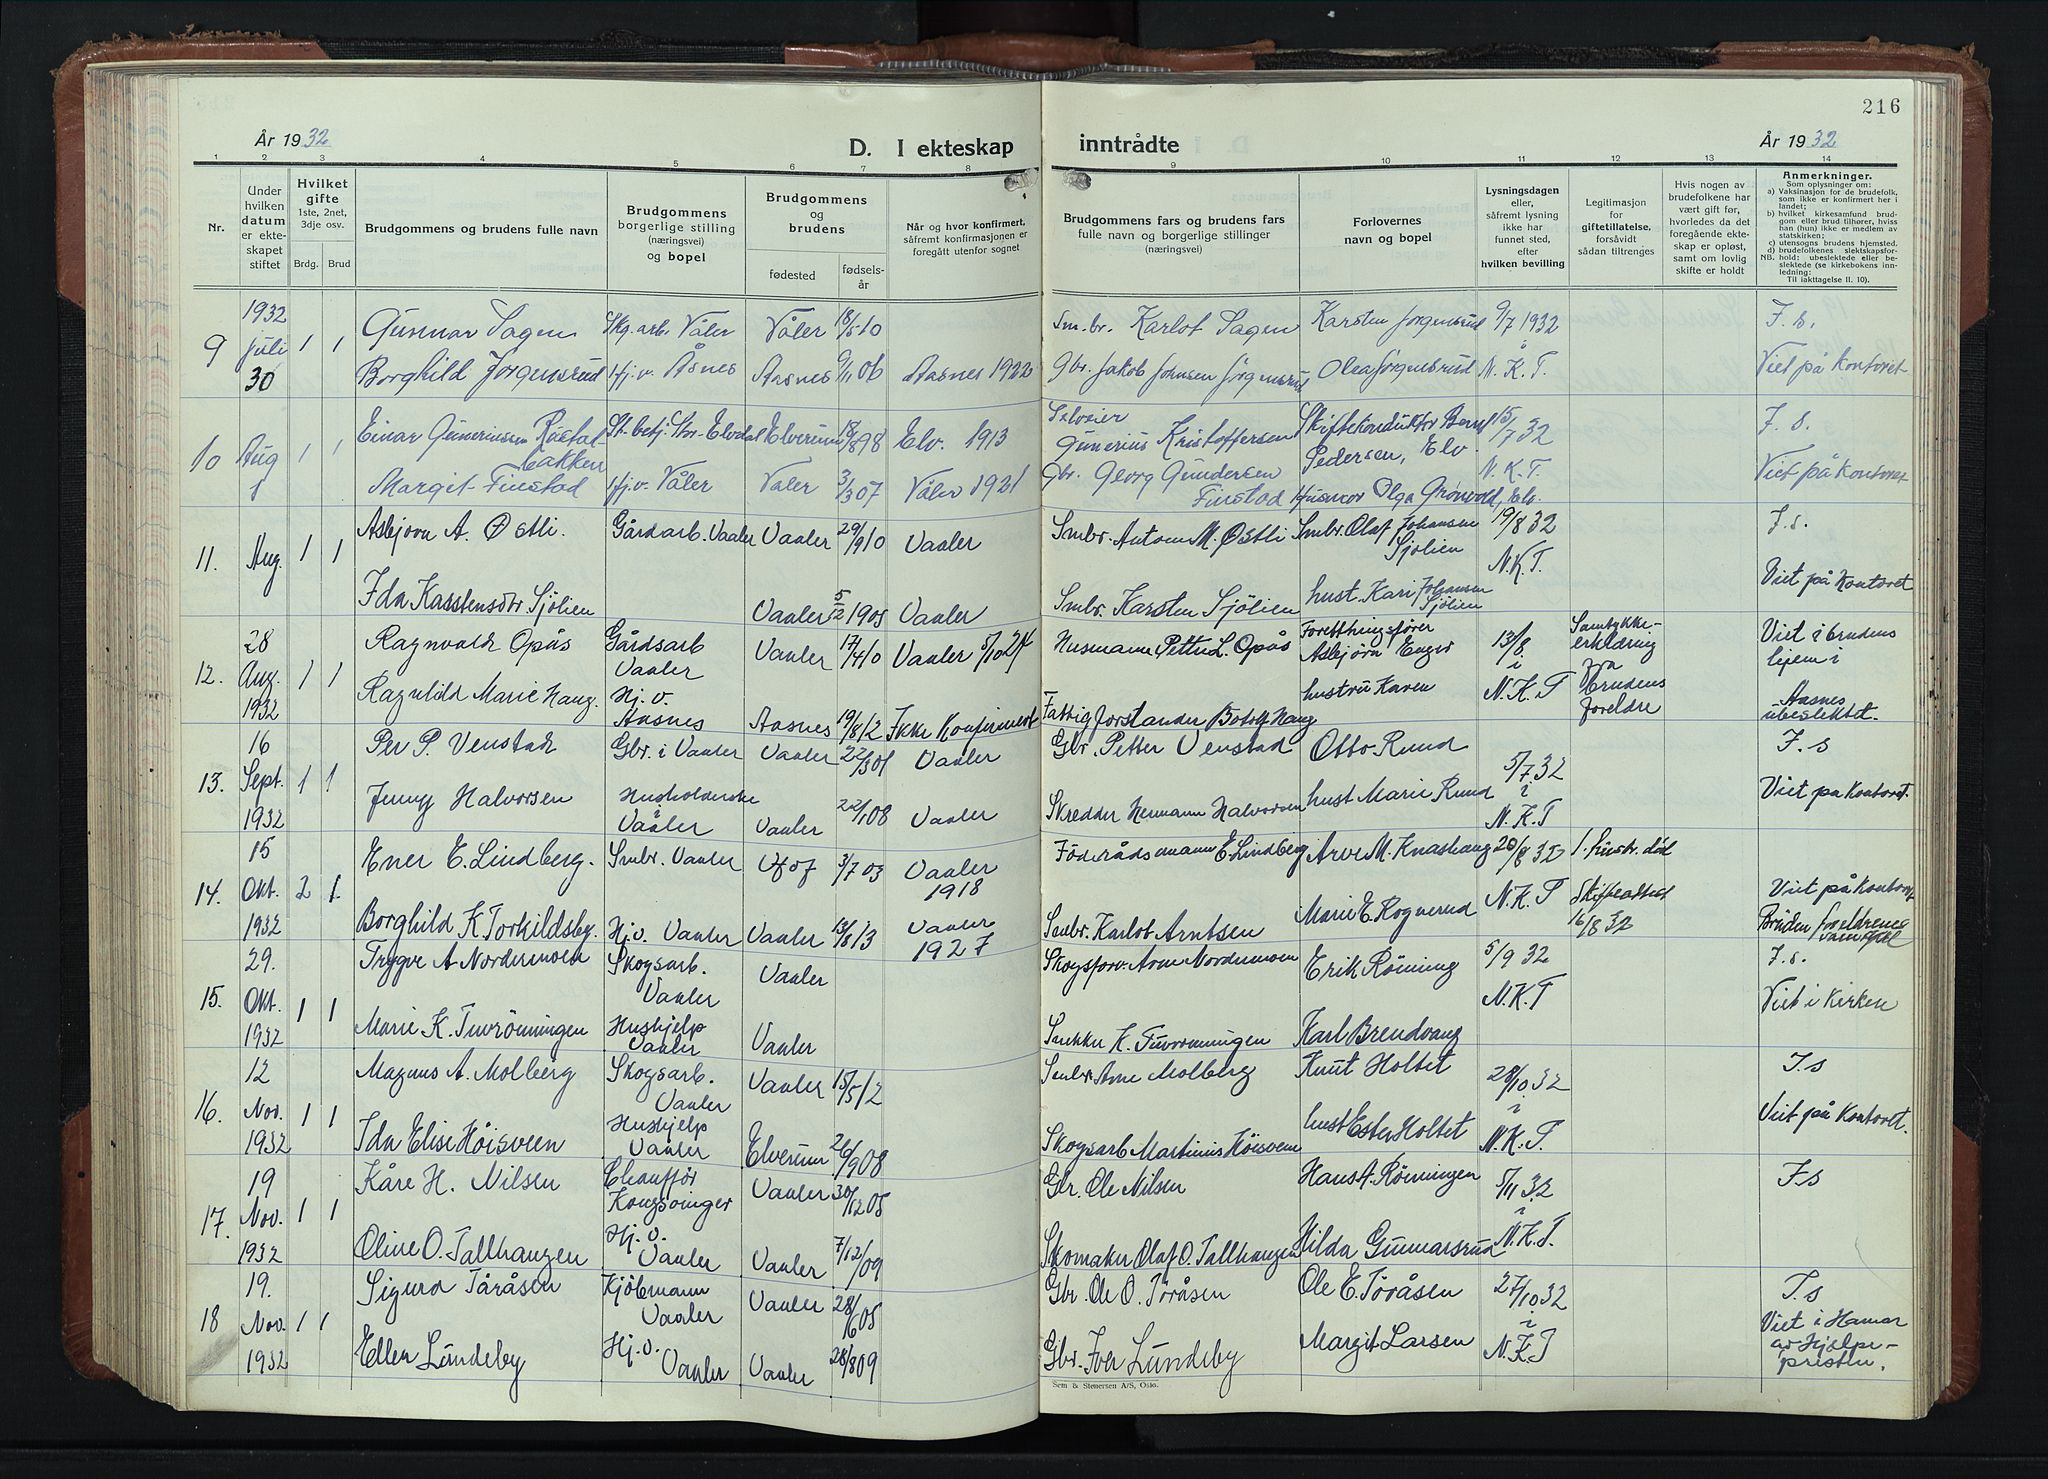 216
År 1932
D. I ekteskap inntrådte
År 1932
1 2 3 4 5 6 7 8 9 10 11 12 13 14
Nr.
Under hvilken datum er ekteskapet stiftet
Hvilket gifte 1ste, 2net, 3dje osv.
Brdg. Brud
Brudgommens og brudens fulle navn
Brudgommens borgerlige stilling (næringsvei) og bopel
Brudgommens og brudens
fødested
fødselsår
Når og hvor konfirmert, såfremt konfirmasjonen er foregått utenfor sognet
Brudgommens fars og brudens fars fulle navn og borgerlige stillinger (næringsvei)
Forlovernes navn og bopel
Lysningsdagen eller, såfremt lysning ikke har funnet sted, efter hvilken bevilling
Legitimasjon for giftetillatelse, forsåvidt sådan tiltrenges
Hvis nogen av brudefolkene har vært gift før, hvorledes da det foregående ekteskap er opløst, samt om lovlig skifte er holdt
Anmerkninger.
Som oplysninger om:
a) Vaksinasjon for de brudefolk, som ikke er konfirmert her i landet;
b) hvilket kirkesamfund brudgom eller brud tilhører, hviss han (hun) ikke er medlem av statskirken;
c) utensogns brudens hjemsted.
d) brudefolkenes slektskapsforhold: ubeslektede eller beslektede (se kirkebokens innledning:
NB. Til iakttagelse II. 10).
1932 Gunnar Sagen Skg. arb. Våler Våler 18/5 10 Sm. br. Karlot Sagen Karsten Jørgensrud 9/7 1932 F. s.
9 juli 1 1
30 Borghild Jørgensrud Hj. v. Åsnes Aasnes 9/11 06 Aasnes 1922 Gbr. Jakob Johnsen Jørgensrud Olea Jørgensrud N. K. T. Viet på kontoret
Einar Guneriussen Rastadbakken Elverum 18/8 98 Elv. 1913 Gunerius Kristoffersen Skiftekonduktør Pedersen, Elv. 15/7 32 F. s.
10 Aug 1 1
1 Margit Finstad Hj. v. Våler Våler 3/3 07 Våler 1921 Gbr. Georg Gundersen Finstad Husmor Olga Grønvold, Elv. N. K. T. Viet på kontoret
Asbjørn A. Østli. Gårdarb. Vaaler Vaaler 29/9 10 Vaaler Smbr. Antom M. Østli Smbr. Olaf Johansen Sjölien 19/8 32 F. s.
11. Aug. 1 1 N.K.T.
Ida Karstensdtr Sjölien Vaaler 5/2 1905 Vaaler Smbr. Karsten Sjölien hust. Kari Johansen Sjölien Viet på kontoret
28 Ragnvald Opås Gårdsarb Vaaler Vaaler 17/4 10 Vaaler 5/10 24 Husmann Petter L. Opås Forettningsfører Asbjørn Enger 13/8 Samtykkeerklæring fra brudens foreldre Viet i brudens hjem i
12. Aug. 1 1
1932 Ragnhild Marie Haug. Hj. v. Aasnes Aasnes 19/8 12 Ikke Konfirmert Fattigforstander Botolf Haug hustru Karen i N. K. T Aasnes ubeslektet.
16 Per P. Venstad Gbr. i Vaaler Vaaler 22/3 01 Vaaler Gbr. Petter Venstad Otto Ruud 5/7 32 F. s
13. Sept. 1 1
1932 Jenny Halvorsen Husholderske Vaaler Vaaler 22/1 08 Vaaler Skredder Hermann Halvorsen hust Marie Ruud i N. K. T Viet pa kontoret.
15 Ener E. Lindberg. Smbr. Vaaler Hof 3/7 03 Vaaler 1918 Föderådsmann E. Lindberg Arve M. Knashaug 20/8 32 1. hustr. död
14. Okt. 2 1. Viet på kontoret
1932 Borghild K. Torkildsby. Hj.v. Vaaler Vaaler 13/8 13 Vaaler 1927 Smbr. Karlot Arntsen Marie E. Rognerud N. K. T Skifteattest 16/8 32
29. Trygve A. Nordermoen Skogsarb. Vaaler Vaaler Skogsforv. Arne Nordermoen Erik Rönning 5/9 32 F. s.
15. Okt. 1 1
1932 Marie K. Tuvrönningen Hushjelp Vaaler Vaaler Snekker K. Tuvrönningen Karl Brendvang N.K.T Viet i Kirken
12 Magnus A. Molberg Skogsarb. Vaaler Vaaler 15/5 12 Smbr. Arne Molberg Knut Holtet 28/10 32 F. s
16. Nov. 1 1
1932 Ida Elise Höisveen Hushjelp Vaaler Elverum 26/9 08 Skogsarb Martinus Höisveen hust Ester Holtet i N. K. T. Viet på Kontoret.
19 Kåre H. Nilsen Chaufför Kongsvinger Vaaler 30/12 05 Gbr. Ole Nilsen Hans A. Rönningen 5/11 32 F. s
17. Nov. 1 1
1932 Oline O. Tallhaugen Hj. v. Vaaler Vaaler 7/12/09 Skomaker Olaf O. Tallhaugen Hilda Gunnarsrud i N. K. T.
19. Sigurd Töråsen Kjöbmann Vaaler Vaaler 28/6 05 Gbr. Ole O. Töråsen Ole E. Töråsen 27/10 32 F. s
18 Nov. 1 1
1932 Ellen Lundeby Hj. v. Vaaler Vaaler 28/8 09 Gbr. Iver Lundeby Margit Larsen i N. K. T Viet i Hamar av Hjelpepresten.
Sem & Stenersen A/S, Oslo.